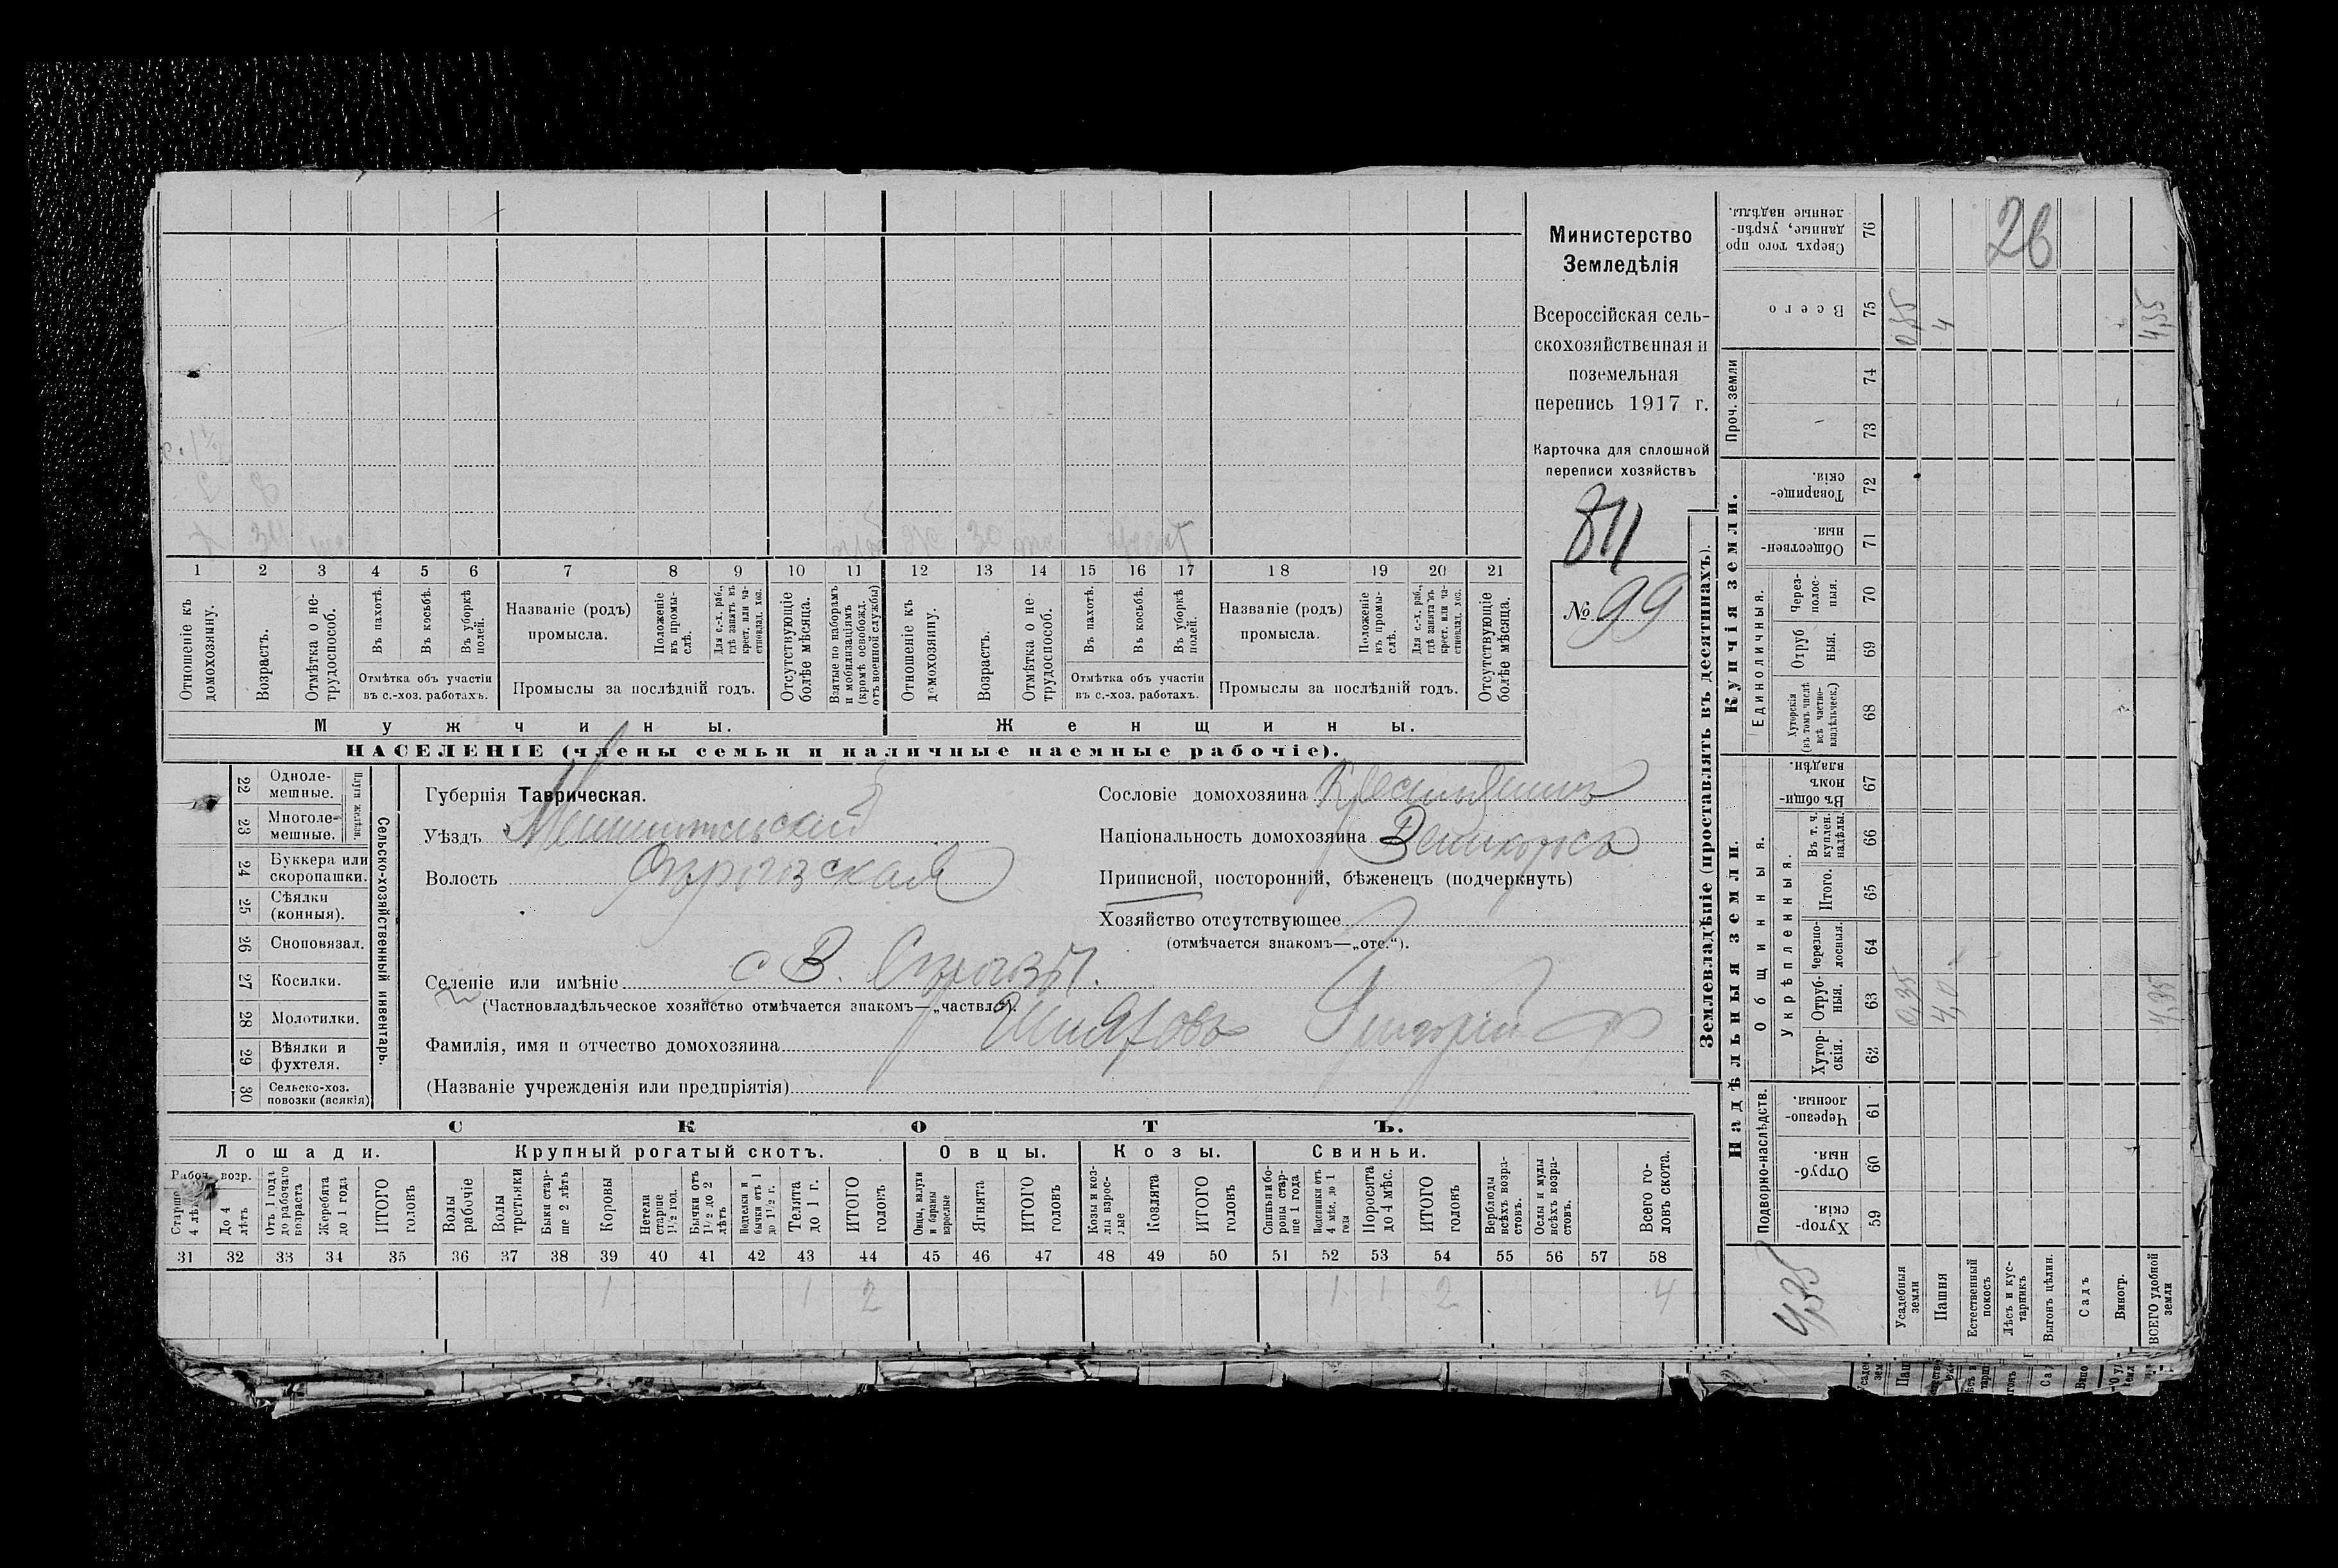 Министерство
Земледѣлія
Всероссійская сель-
скохозяйственная и
поземельная
перепись 1917 г.
Карточка для сплошной
переписи хозяйствъ
811
№ 99
1 2 3 4 5 6 7 8 9 10 11 12 13 14 15 16 17 18 19 20 21
Отношеніе къ домохозяину.
Возрастъ.
Отмѣтка о не-трудоспособ.
Въ пахотѣ.
Въ косьбѣ.
Въ уборкѣ полей.
Отмѣтка объ участіи въ с.-хоз. работахъ.
Названіе (родъ) промысла.
Положеніе въ промы-слѣ.
Для с.-х. раб., гдѣ занятъ въ крест. или ча-стновлад. хоз.
Промыслы за послѣдній годъ.
Отсутствующіе болѣе мѣсяца.
Взятые по наборамъ и мобилизаціямъ (кромѣ освобожд. отъ военной службы)
Отношеніе къ домохозяину.
Возрастъ.
Отмѣтка о не-трудоспособ.
Въ пахотѣ.
Въ косьбѣ.
Въ уборкѣ полей.
Отмѣтка объ участіи въ с.-хоз. работахъ.
Названіе (родъ) промысла.
Положеніе въ промы-слѣ.
Для с.-х. раб., гдѣ занята въ крест. или ча-стновлад. хоз.
Промыслы за послѣдній годъ.
Отсутствующіе болѣе мѣсяца.
Мужчины. Женщины.
НАСЕЛЕНІЕ (члены семьи и наличные наемные рабочіе).
Сельско-хозяйственный инвентарь.
22 Одноле-мешные.
23 Многоле-мешные.
24 Буккера или скоропашки.
25 Сѣялки (конныя).
26 Сноповязал.
27 Косилки.
28 Молотилки.
29 Вѣялки и фухтеля.
30 Сельско-хоз. повозки (всякія)
Губернія Таврическая.
Уѣздъ Мелитопольскій
Волость Сѣрогозская
Селеніе или имѣніе с В. Сѣрогозы.
(Частновладѣльческое хозяйство отмѣчается знакомъ—„частвл“).
Фамилія, имя и отчество домохозяина Григорій
(Названіе учрежденія или предпріятія)
Сословіе домохозяина Крестьянинъ
Національность домохозяина Великороссъ
Приписной, посторонній, бѣженецъ (подчеркнуть)
Хозяйство отсутствующее
(отмѣчается знакомъ—„отс.“).
СКОТЪ.
Лошади. Крупный рогатый скотъ. Овцы. Козы. Свиньи.
Рабоч. возр.
Старше 4 лѣтъ
До 4 лѣтъ
Отъ 1 года до рабочаго возраста
Жеребята до 1 года
ИТОГО головъ
Волы рабочіе
Волы третьяки
Быки стар-ше 2 лѣтъ
Коровы
Нетели старше 1½ год.
Бычки отъ 1½ до 2 лѣтъ
Подтелки и бычки отъ 1 до 1½ г.
Телята до 1 г.
ИТОГО головъ
Овцы, валухи и бараны взрослые
Ягнята
ИТОГО головъ
Козы и коз-лы взрос-лые
Козлята
ИТОГО головъ
Свиньи и бо-ровы стар-ше 1 года
Подсвинки отъ 4 мѣс. до 1 года
Поросята до 4 мѣс.
ИТОГО головъ
Верблюды всѣхъ возра-стовъ.
Ослы и мулы всѣхъ возра-стовъ.
Всего го-ловъ скота.
31 32 33 34 35 36 37 38 39 40 41 42 43 44 45 46 47 48 49 50 51 52 53 54 55 56 57 58
1 1 2 1 1 2 4
Землевладѣніе (проставлять въ десятинахъ).
Надѣльныя земли.
Подворно-наслѣдств.
Хутор-скія. 59
Отруб-ныя. 60
Черезпо-лосныя. 61
Общинныя.
Укрѣпленныя.
Хутор-скія. 62
Отруб-ныя. 63
Черезпо-лосныя. 64
Итого. 65
Въ т. ч. куплен. надѣлы. 66
Въ общи-номъ владѣн. 67
Купчія земли.
Единоличныя.
Хуторскія (въ томъ числѣ всѣ частно-владѣльческ.) 68
Отруб ныя. 69
Через-полос-ныя. 70
Обществен-ныя. 71
Товарище-скія. 72
Проч. земли
73
74
Всего 75
Сверхъ того про данные, укрѣп-ленные надѣлы. 76
26
Усадебныя земли
0,35 0,35
Пашня
4,0 4
Естественный покосъ
Лѣсъ и кус-тарникъ
Выгонъ цѣлин.
Садъ
Виногр.
ВСЕГО удобной земли
4,35 4,35
4,35